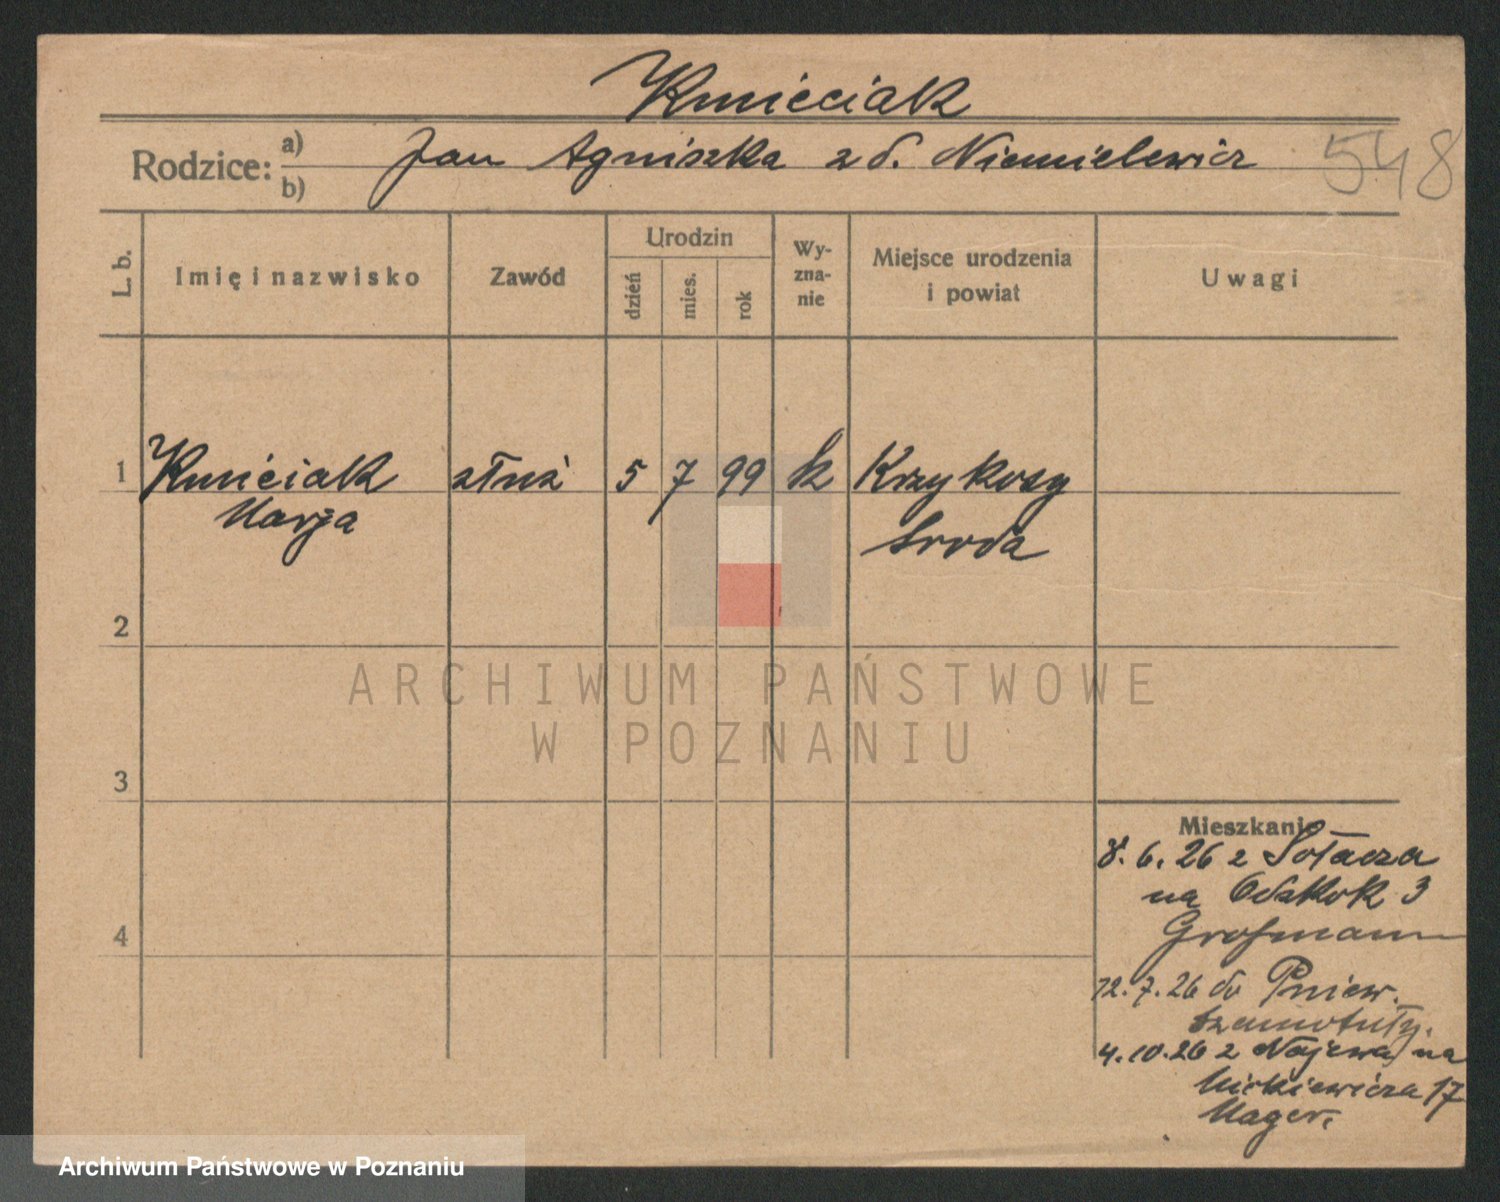 Kmieciak
548
Rodzice: a) b) Jan Agniszka z d. Niemielewicz
L. b. Imię i nazwisko Zawód Urodzin dzień mies. rok Wyznanie Miejsce urodzenia i powiat Uwagi
1 Kmieciak służ 5 7 99 k Krzykosy
Marja Sroda
2
ARCHIWUM PAŃSTWOWE
W POZNANIU
3
4
Mieszkanie
8. 6. 26 z Sołacza
na 3
Grofmann
12. 7. 26 do Pniew.
Szamotuły.
4. 10. 26 z na
Mickiewicza 17
Mager.
Archiwum Państwowe w Poznaniu